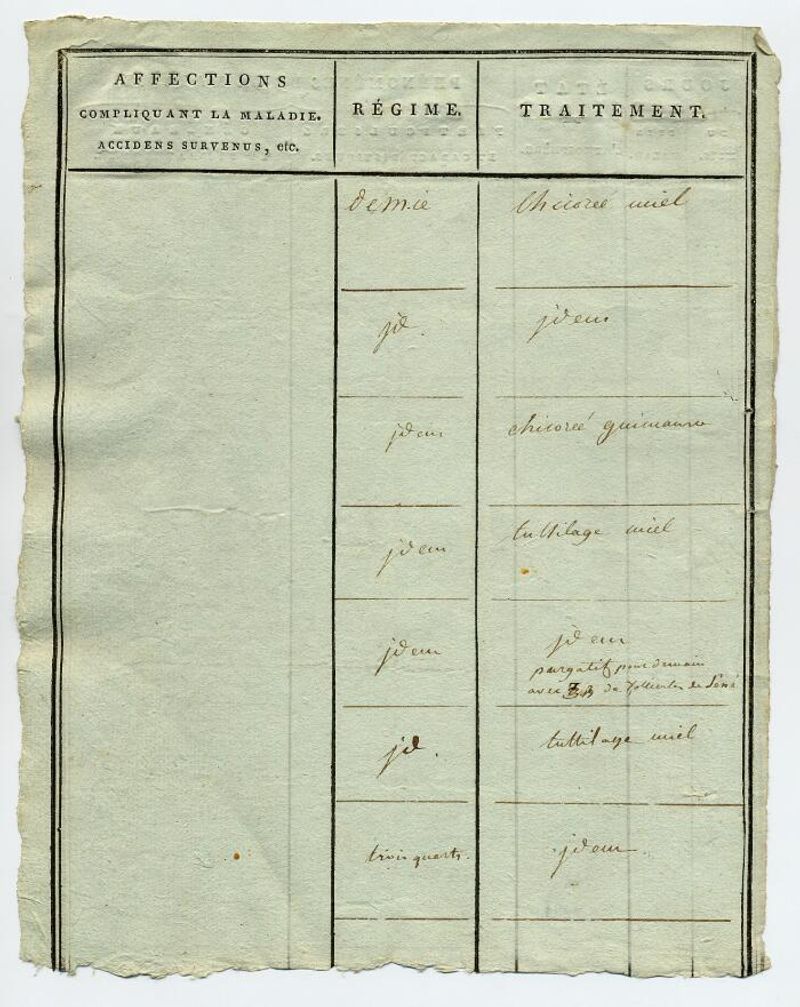 AFFECTIONS
COMPLIQUANT LA MALADIE.
ACCIDENS SURVENUS, etc.
RÉGIME.
TRAITEMENT.
demie
Chicoree miel
jd.
jdem
jdem
chicoreé guimauve
jdem
tussilage miel
jdem
jdem
purgatif pour demain
avec de follicules de Séné
jd.
tussilage miel
trois quarts.
jdem